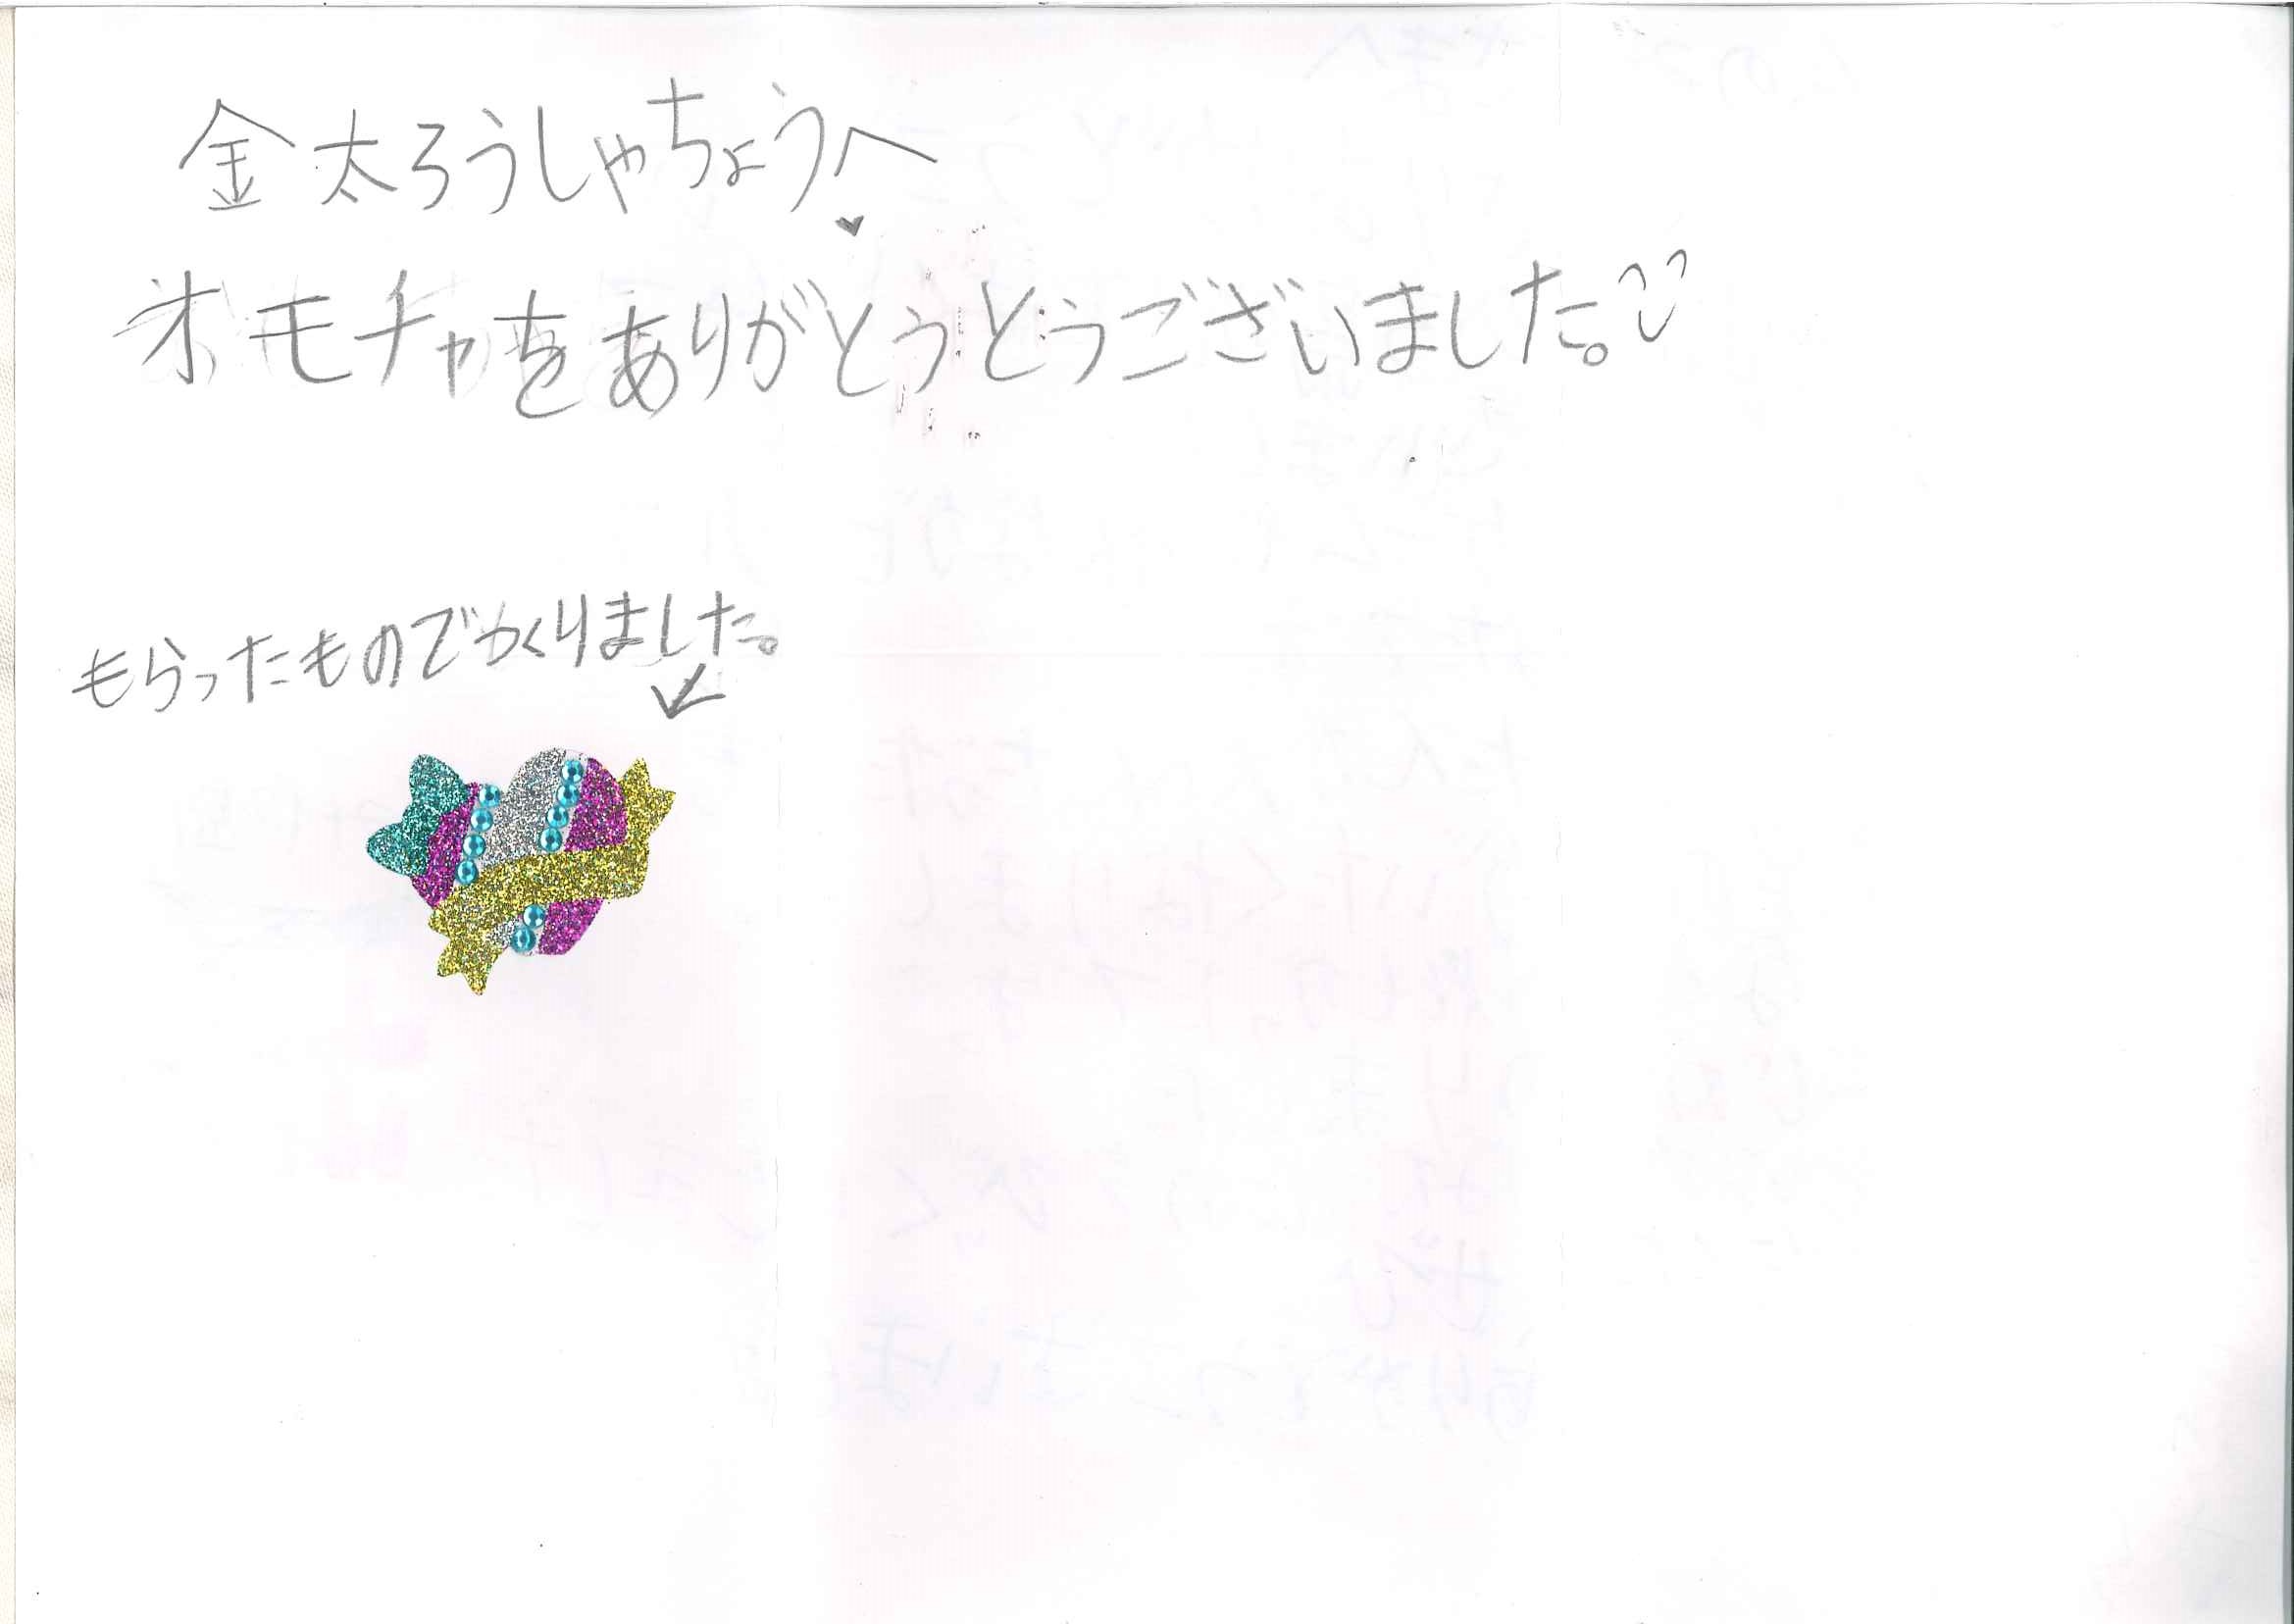 金太ろうしゃちょうへ
オモチャをありがとうとうございました。
もらったものでつくりました。